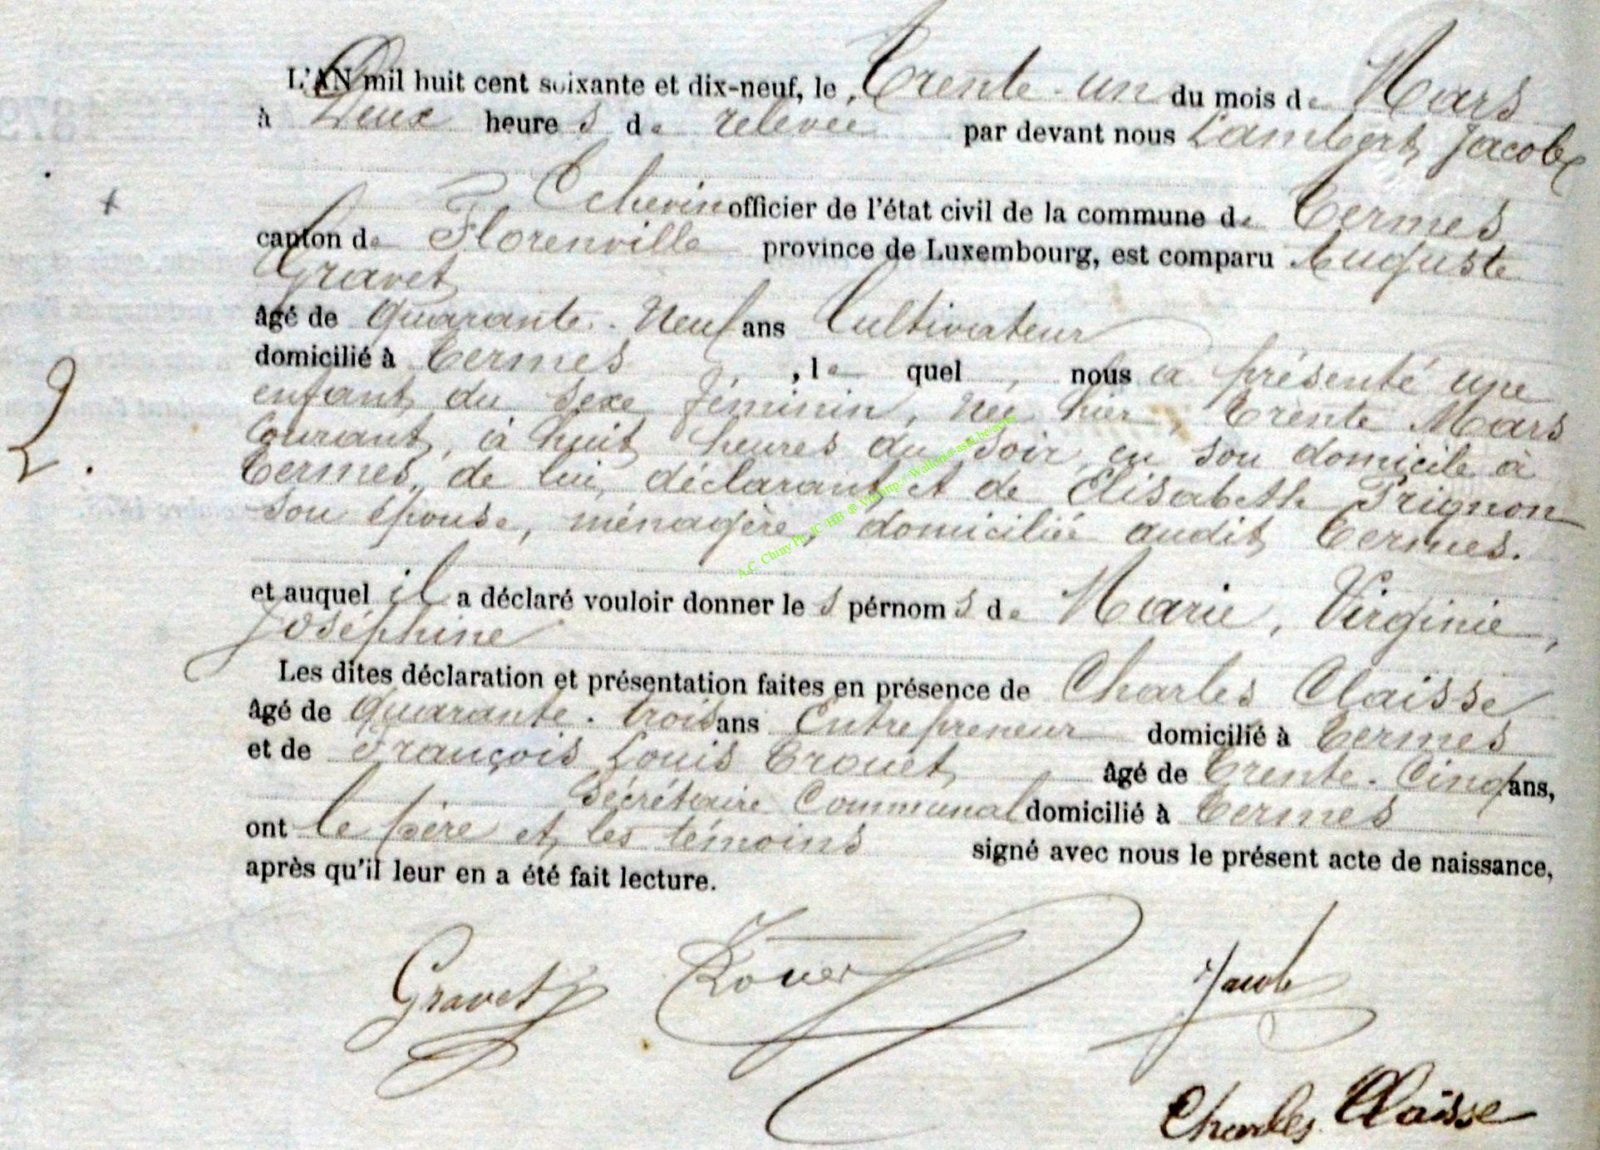 L'AN mil huit cent soixante et dix-neuf, le Trente-un du mois de Mars
à Deux heures de relevée par devant nous Lambert Jacob
Echevin officier de l'état civil de la commune de Termes
canton de Florenville province de Luxembourg, est comparu Auguste
Gravet
âgé de quarante-Neuf ans Cultivateur
domicilié à Termes, lequel nous a présenté une
enfant du sexe féminin, née hier, Trente Mars
Courant, à huit heures du soir, en son domicile à
Termes, de lui, déclarant et de Elisabeth Trignon
son épouse, ménagère, domiciliée audit Termes.
et auquel il a déclaré vouloir donner les pérnoms de Marie, Virginie,
Joséphine
Les dites déclaration et présentation faites en présence de Charles Claisse
âgé de quarante-trois ans Entrepreneur domicilié à Termes
et de François Louis Trouet âgé de Trente-Cinq ans,
Sécrétaire Communal domicilié à Termes
ont le père et les témoins signé avec nous le présent acte de naissance,
après qu'il leur en a été fait lecture.
2.
Gravet Jacob
Charles Claisse